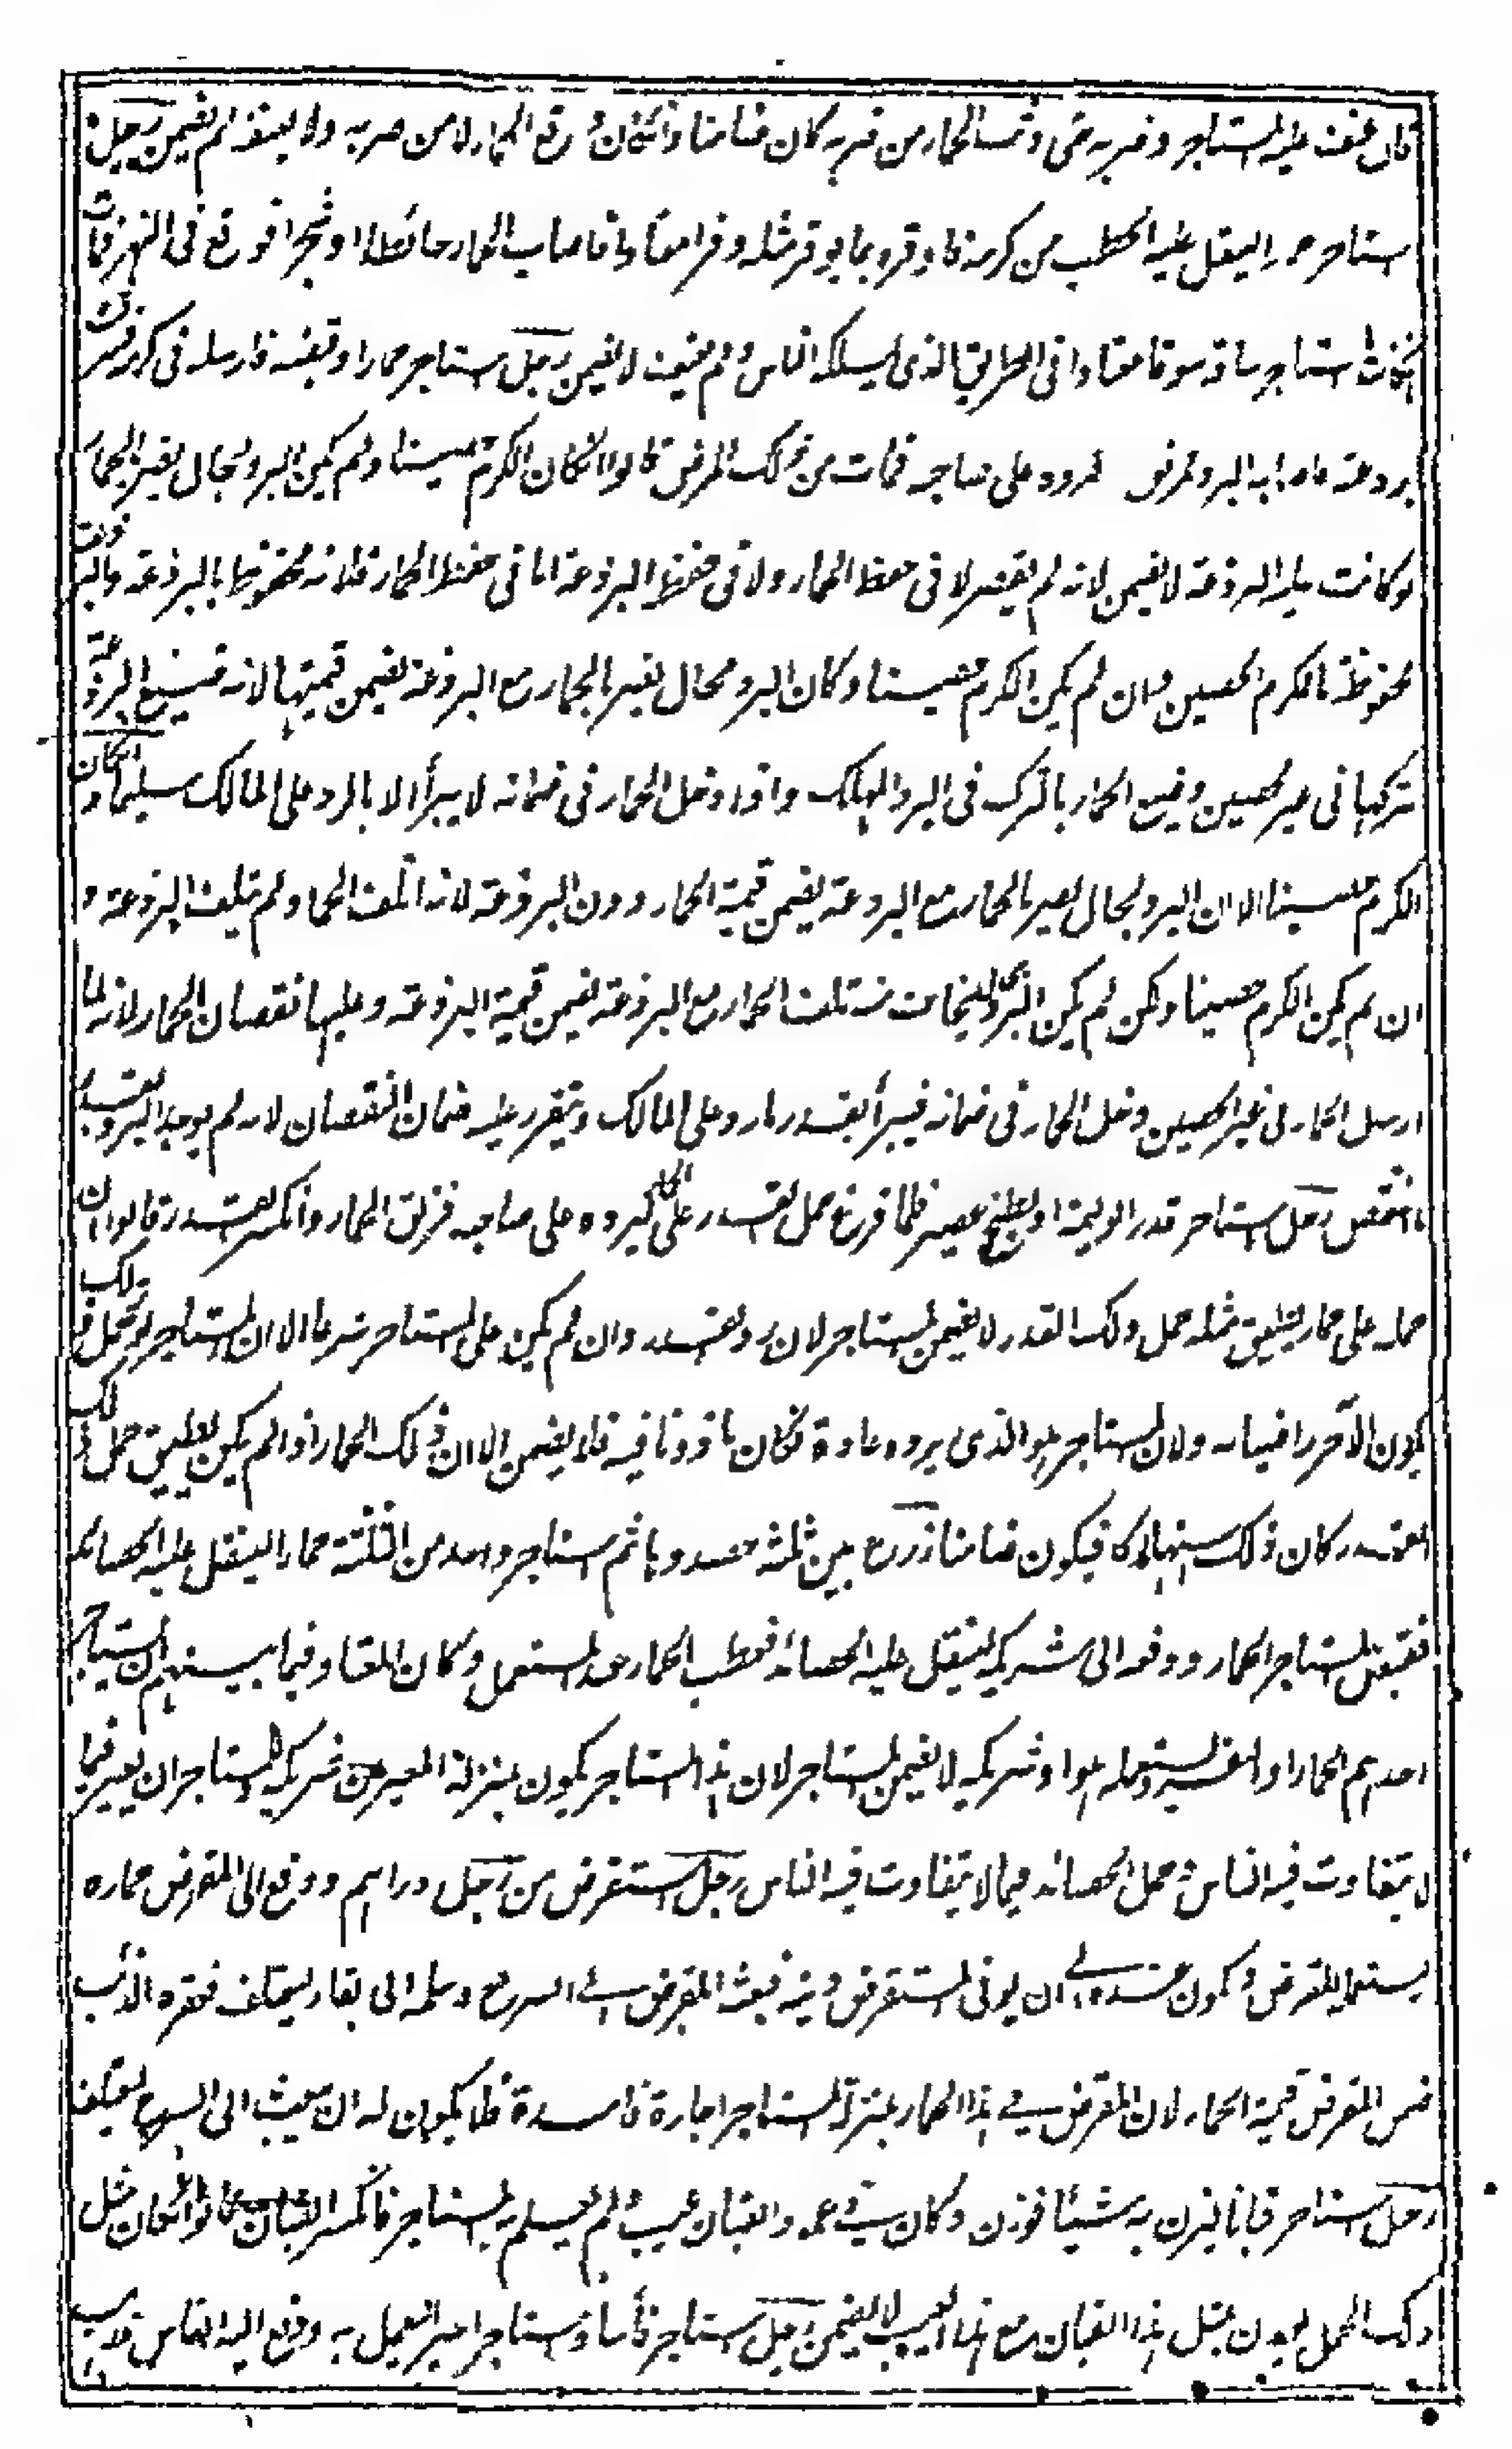 قال عنف عليه المستاجر وضربه حتى وقع الحمار من ضربه كان ضامنا وان كان وقع الحمار لا من ضربه ولا يعنفه لم يضمن رجل
استاجر حمارا لينقل عليه الحطب من كرمه فاوقره بما يوقر مثله وقرا معتادا فاصاب الحمار حائطا او شجرا فوقع فى النهر فمات
انكان المستاجر ساقه سوقا معتادا فى الطريق الذى يسلكه الناس ولم يعنف لا يضمن رجل استاجر حمارا وقبضه فارسله فى كرمه فسرقت
برذعته واصابه البرد فمرض فرده على صاحبه فمات من ذلك المرض قالوا انكان الكرم حصينا ولم يكن البرد بحال يضر بالحمار
لو كانت عليه البرذعة لا يضمن لانه لم يقصر لا فى حفظ الحمار ولا فى حفظ البرذعة اما فى حفظ الحمار فلانه محفوظ بالبرذعة والبرذعة
محفوظة بالكرم الحصين وان لم يكن الكرم حصينا وكان البرد بحال يضر بالحمار مع البرذعة يضمن قيمتهما لانه ضيع البرذعة
بتركها فى غير حصين وضيع الحمار بالترك فى البرد المهلك واذا دخل الحمار فى ضمانه لا يبرأ الا بالرد على المالك سليما وان كان
الكرم حصينا الا ان البرد بحال يضر بالحمار مع البرذعة يضمن قيمة الحمار دون البرذعة لانه اتلف الحمار ولم يتلف البرذعة و
ان لم يكن الكرم حصينا ولكن لم يكن البرد بحال يتلف الحمار مع البرذعة يضمن قيمة البرذعة وعليه نقصان الحمار لانه لما
ارسل الحمار فى غير الحصين دخل الحمار فى ضمانه فيبرأ بقدر ما رد على المالك ويتقرر عليه ضمان النقصان لانه لم يوجد الرد بقدر
ما انتقص رجل استاجر قدرا لوليمة او لطبخ عصير فلما فرغ حمل القدر على الحمار ليرده على صاحبه فزلق الحمار وانكسر القدر قالوا ان
حمله على حمار يطيق مثله حمل ذلك القدر لا يضمن المستاجر لان رد القدر وان لم يكن على المستاجر شرعا الا ان المستاجر لو حمل ذلك
يكون الآجر راضيا به ولان المستاجر هو الذى يرده عادة فكان ماذونا فيه فلا يضمن الا ان ذلك الحمار اذا لم يكن يطيق حمل ذلك
القدر كان ذلك استهلاكا فيكون ضامنا زرع بين ثلثة حصدوها ثم استاجر واحد من الثلثة حمارا لينقل عليه الحصائد
فقبض المستاجر الحمار ودفعه الى شريكه لينقل عليه الحصائد فعطب الحمار عند المستعمل وكان المعتاد فيما بينهم ان يستاجر
احدهم الحمار او البقر ويستعمله هو او شريكه لا يضمن المستاجر لان هذا المستاجر يكون بمنزلة المعير من شريكه وللمستاجر ان يعير فيما
لا يتفاوت فيه الناس وحمل الحصائد فيما لا يتفاوت فيه الناس رجل استقرض من رجل دراهم ودفع الى المقرض حماره
يستعمله المقرض ويكون عنده الى ان يوفى المستقرض دينه فبعث المقرض الى السرح وسلمه الى بقار ليعتلف فعقره الذئب
ضمن المقرض قيمة الحمار لان المقرض فى هذا الحمار بمنزلة المستاجر اجارة فاسدة فلا يكون له ان يبعث الى السرح ليعتلف
رجل استاجر قبانا ليزن به شيئا فوزن وكان فى عمود القبان عيب لم يعلم به المستاجر فانكسر القبان قالوا انكان مثل
ذلك الحمل يوزن بمثل هذا القبان مع هذا العيب لا يضمن رجل استاجر فأسا واستاجر اجيرا ليعمل به ودفع اليه الفاس فذهب